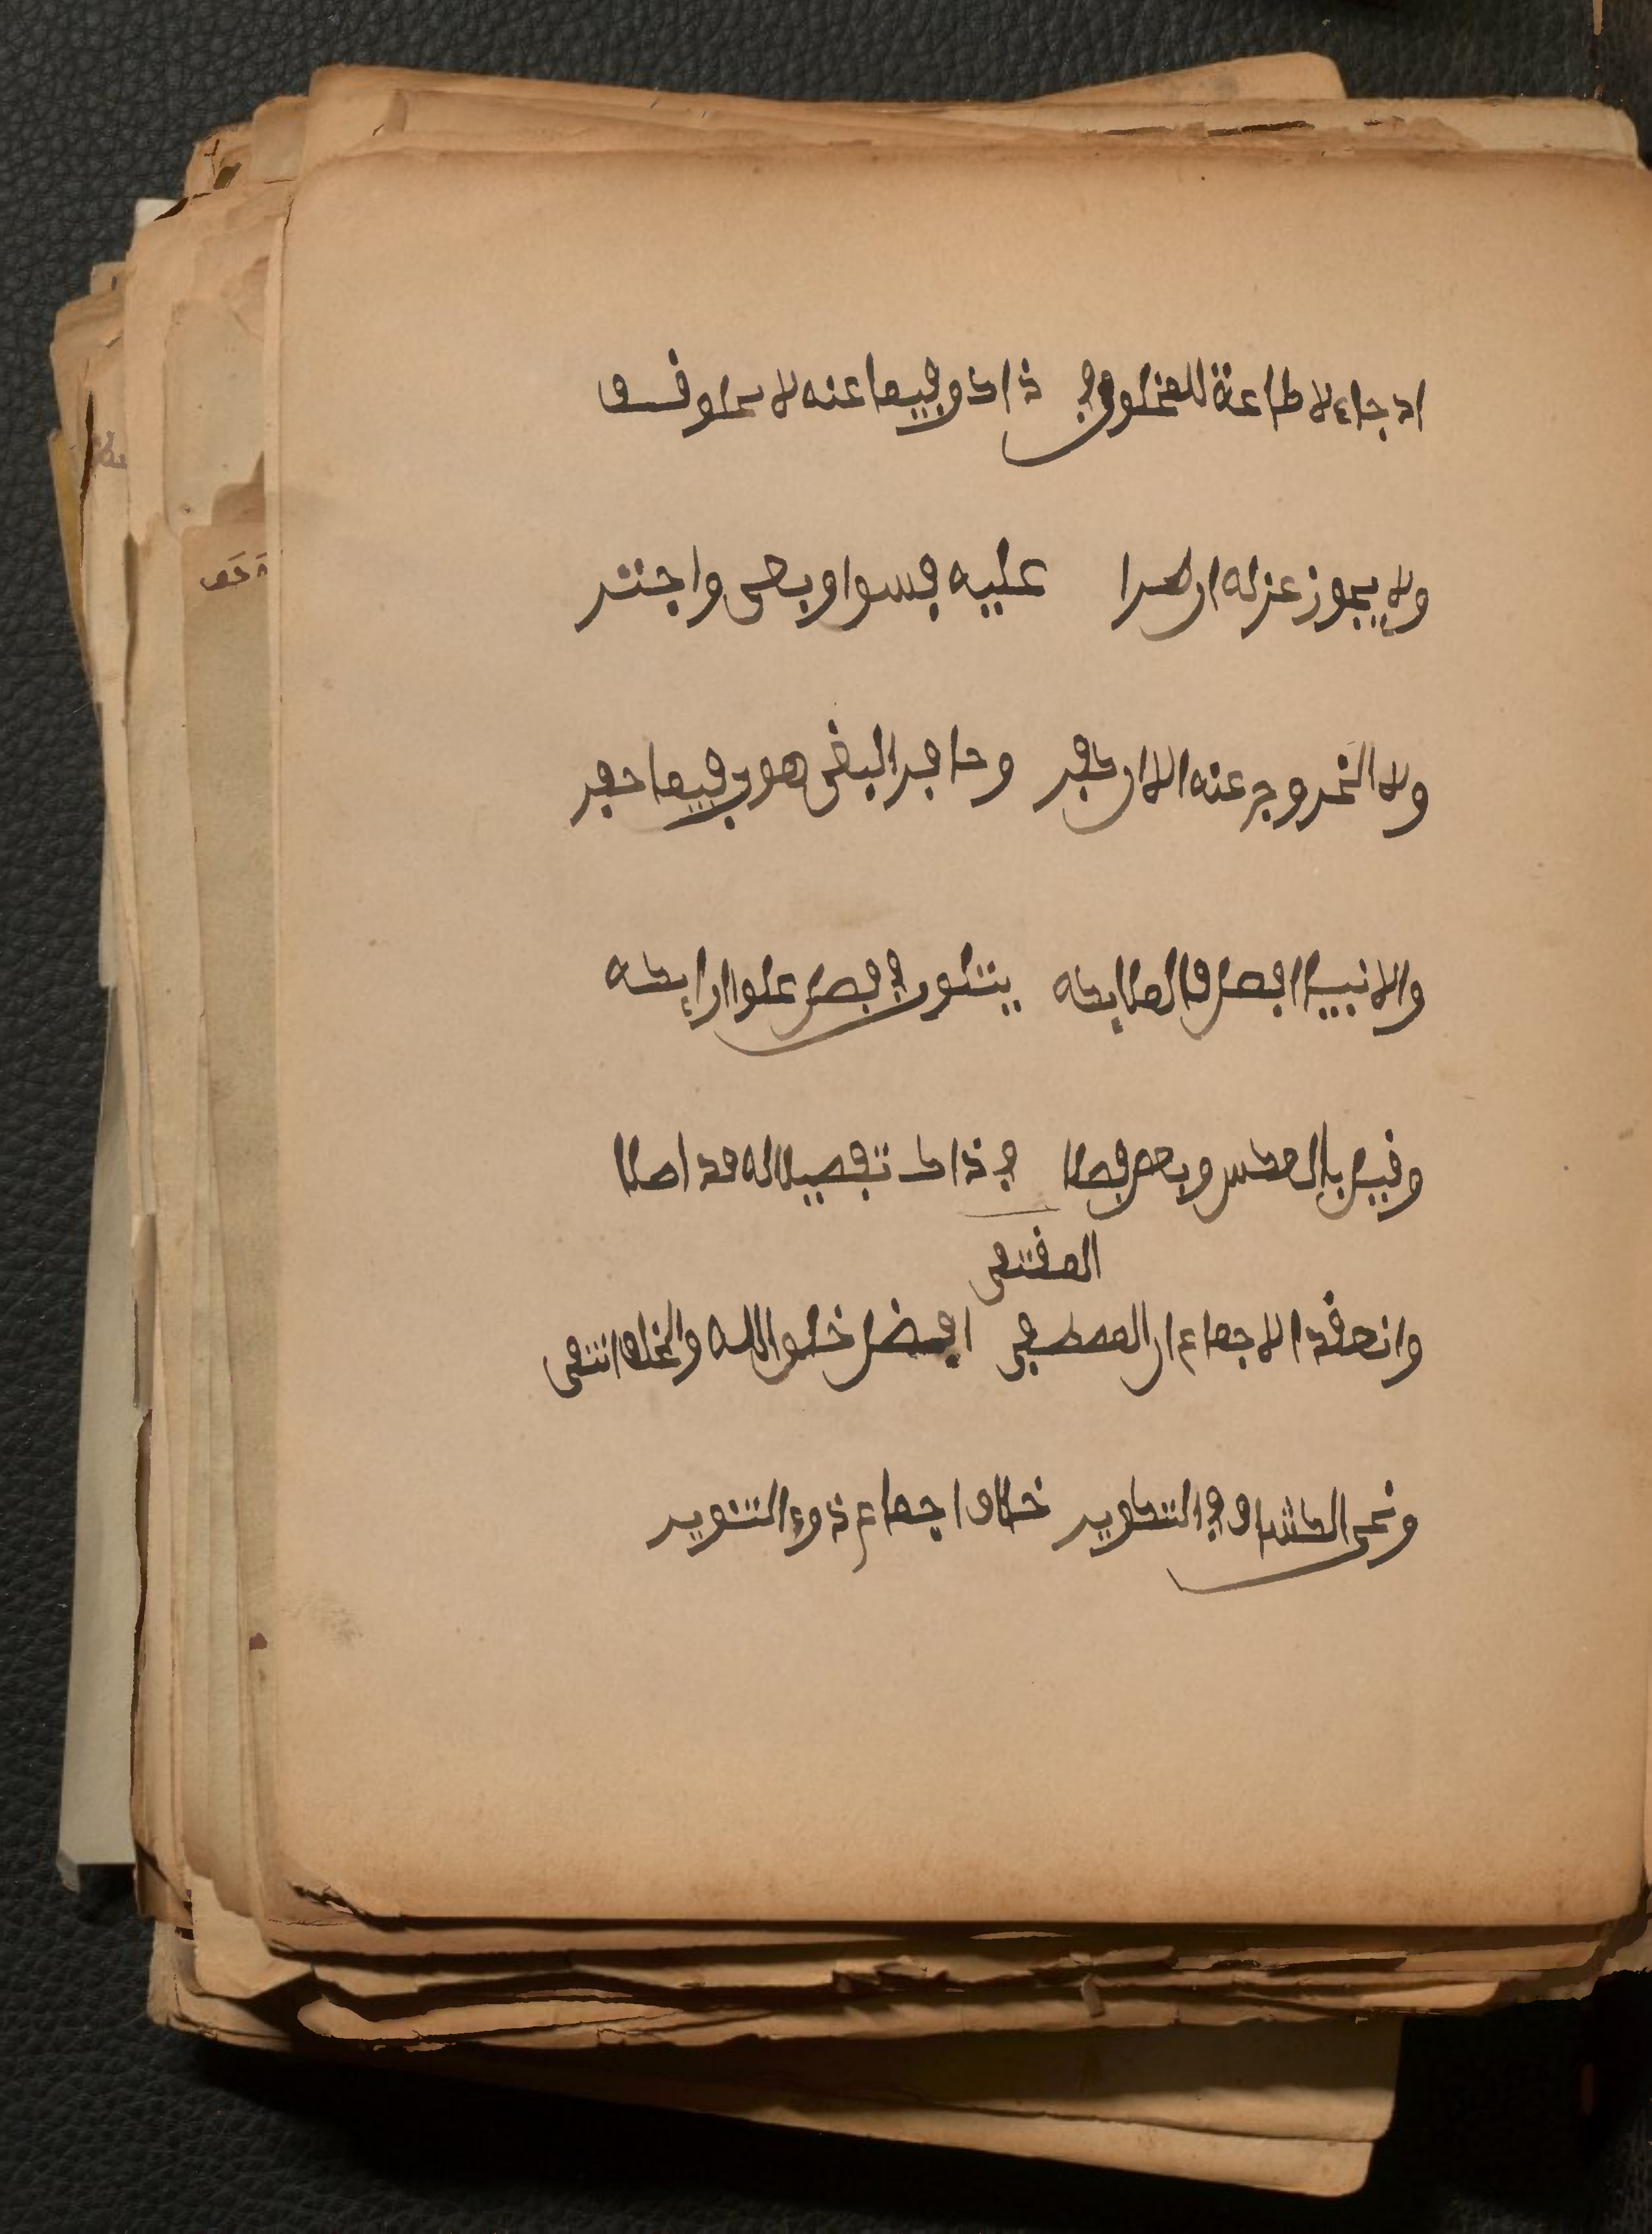 اد جاء لا طاعة للمخلوق في ذاك وفيما عنه لا يخلو قف
ولا يجوز عزله ان طرا عليه فسق او بغى واجتر
ولا الخروج عنه الا ان كفر وحافر البغي هوى فيما حفر
والانبيا افضل فالملائكه يتلون في فضل علو الارائكه
وقيل بالعكس وبعض فصلا في ذاك تفصيلا له قد اصلا
المقتفى
وانعقد الاجماع ان المصطفى افضل خلق الله والخلف انتفى
ونحى الكشاف في التكوير خلاف اجماع ذوي التنوير